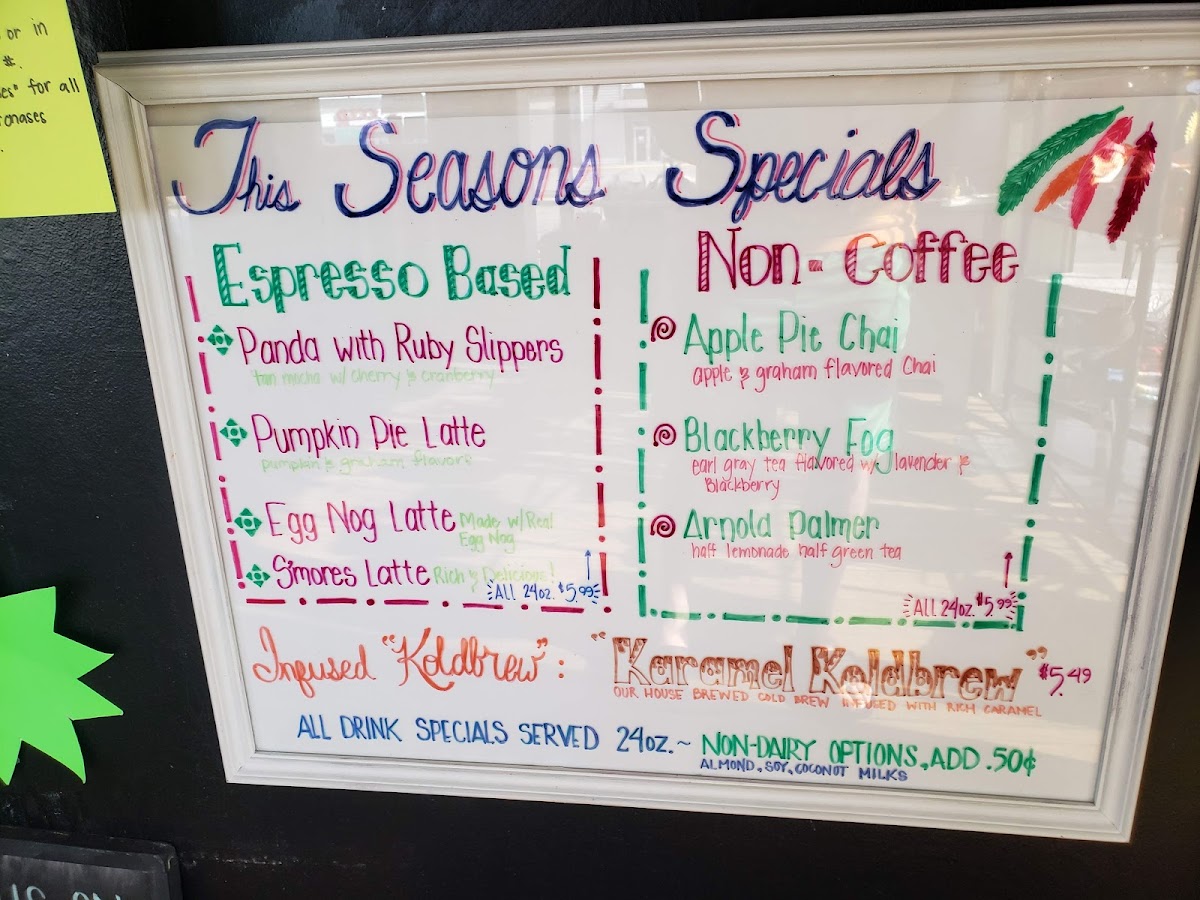 or in
#.
for all
This Seasons Specials
Espresso Based
Panda with Ruby Slippers
w/ cherry & cranberry
Pumpkin Pie Latte
& graham flavors
Egg Nog Latte Made w/ Real
Egg Nog
S'mores Latte Rich & Delicious!
ALL 24oz. $5.99
Non-Coffee
Apple Pie Chai
apple & graham flavored Chai
Blackberry Fog
earl gray tea flavored w/ lavender &
Blackberry
Arnold Palmer
half lemonade half green tea
ALL 24oz. $5.99
Infused "Koldbrew": "Karamel Koldbrew" $5.49
OUR HOUSE BREWED COLD BREW INFUSED WITH RICH CARAMEL
ALL DRINK SPECIALS SERVED 24oz.~ NON-DAIRY OPTIONS, ADD .50¢
ALMOND, SOY, COCONUT MILKS